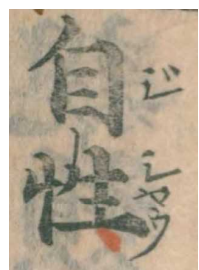 自性
ジシヤウ